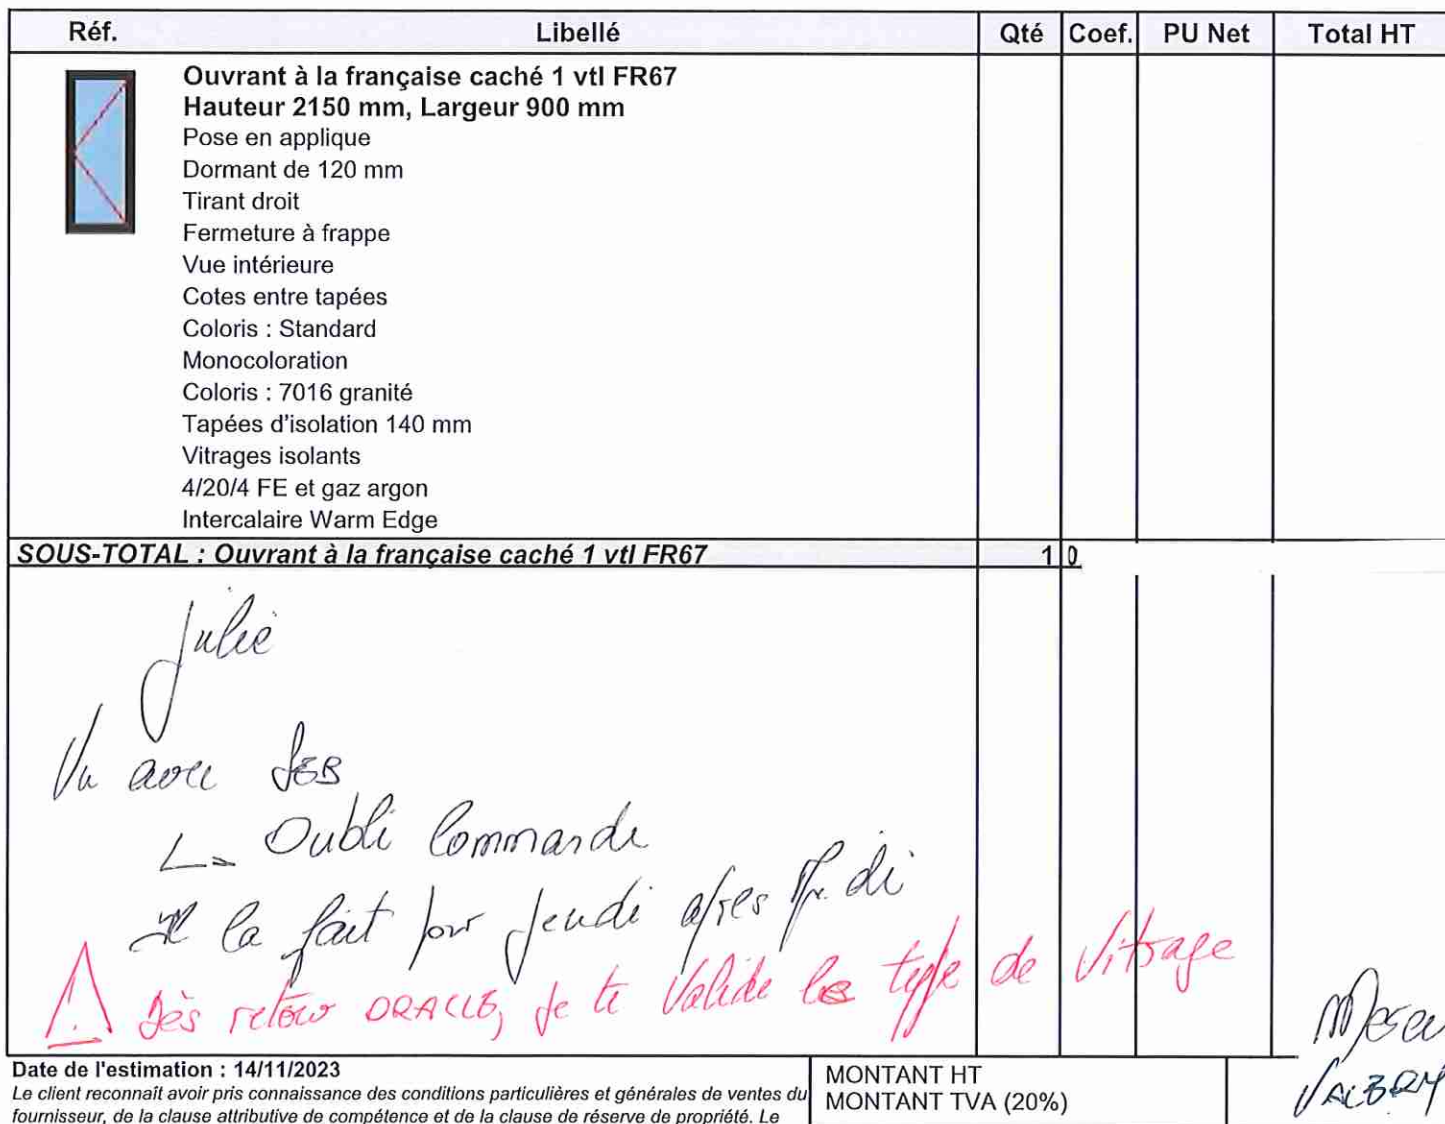 Réf. Libellé Qté Coef. PU Net Total HT
Ouvrant à la française caché 1 vtl FR67
Hauteur 2150 mm, Largeur 900 mm
Pose en applique
Dormant de 120 mm
Tirant droit
Fermeture à frappe
Vue intérieure
Cotes entre tapées
Coloris : Standard
Monocoloration
Coloris : 7016 granité
Tapées d'isolation 140 mm
Vitrages isolants
4/20/4 FE et gaz argon
Intercalaire Warm Edge
SOUS-TOTAL : Ouvrant à la française caché 1 vtl FR67 1 0
Julie
Vu avec SEB
Oubli Commande
Il la fait pour jeudi après
Dès retour, je te Valide le type de Vitrage
Date de l'estimation : 14/11/2023
Le client reconnaît avoir pris connaissance des conditions particulières et générales de ventes du
fournisseur, de la clause attributive de compétence et de la clause de réserve de propriété. Le
MONTANT HT
MONTANT TVA (20%)